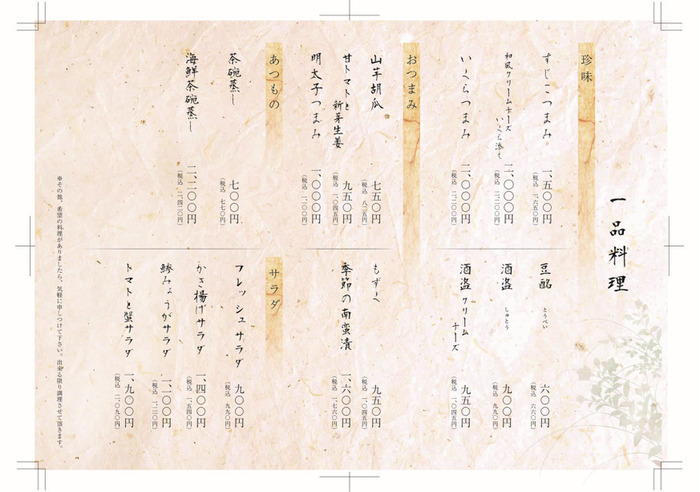 一品料理
珍味
すじこつまみ 一、五〇〇円
(税込 一、六五〇円)
和風クリームチーズ
いくら添え 二、〇〇〇円
(税込 二、二〇〇円)
いくらつまみ 二、〇〇〇円
(税込 二、二〇〇円)
豆酩 とうべい 六〇〇円
(税込 六六〇円)
酒盗 しゅとう 九〇〇円
(税込 九九〇円)
酒盗クリーム
チーズ 九五〇円
(税込 一、〇四五円)
おつまみ
山芋胡瓜 七五〇円
(税込 八二五円)
甘トマトと
新芽生姜 九五〇円
(税込 一、〇四五円)
明太子つまみ 一、〇〇〇円
(税込 一、一〇〇円)
もずく 九五〇円
(税込 一、〇四五円)
季節の南蛮漬 一、六〇〇円
(税込 一、七六〇円)
あつもの
茶碗蒸し 七〇〇円
(税込 七七〇円)
海鮮茶碗蒸し 二、二〇〇円
サラダ
フレッシュサラダ 九〇〇円
(税込 九九〇円)
かき揚げサラダ 一、四〇〇円
(税込 一、五四〇円)
鯵みょうがサラダ
トマトと蟹サラダ 一、九〇〇円
(税込 二、〇九〇円)
※その他、希望の料理がありましたら、気軽に申しつけて下さい。出来る限り調理させて頂きます。